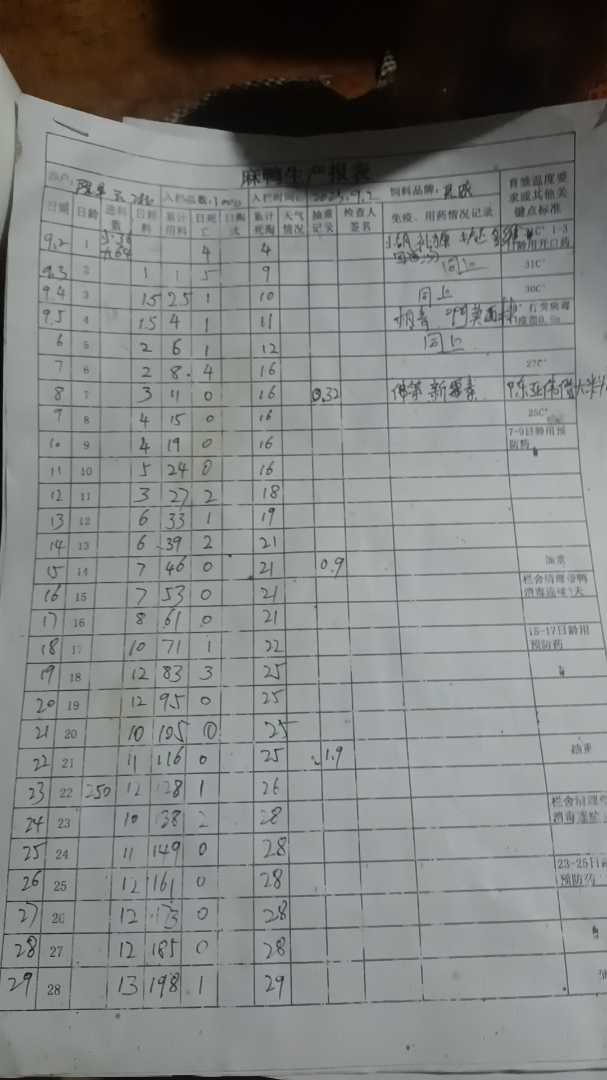 麻鸭生产报表
养户: 入栏总数: 入栏时间: 2023.9.2 饲料品牌:
日期 日龄 进料数 日耗料 累计用料 日死亡 日淘汰 累计死淘 天气情况 抽重记录 检查人签名 免疫、用药情况记录 育雏温度要求或其他关键点标准
9.2 1 4 4 1-3日龄用开口药
9.3 2 1 1 5 9 同上 31C°
9.4 3 1.5 2.5 1 10 同上 30C°
9.5 4 1.5 4 1 11
6 5 2 6 1 12 同上
7 6 2 8 4 16 27C°
8 7 3 11 0 16 0.32 新霉素
9 8 4 15 0 16 25C°
10 9 4 19 0 16 7-9日龄用预防药
11 10 5 24 0 16
12 11 3 27 2 18
13 12 6 33 1 19
14 13 6 39 2 21
15 14 7 46 0 21 0.9 抽重
16 15 7 53 0 21 栏舍清理带鸭消毒
17 16 8 61 0 21
18 17 10 71 1 22 15-17日龄用预防药
19 18 12 83 3 25
20 19 12 95 0 25
21 20 10 105 0 25
22 21 11 116 0 25 1.9 抽重
23 22 250 12 128 1 26
24 23 10 138 2 28 栏舍清理 消毒
25 24 11 149 0 28
26 25 12 161 0 28 23-25日 预防药
27 26 12 173 0 28
28 27 12 185 0 28
29 28 13 198 1 29